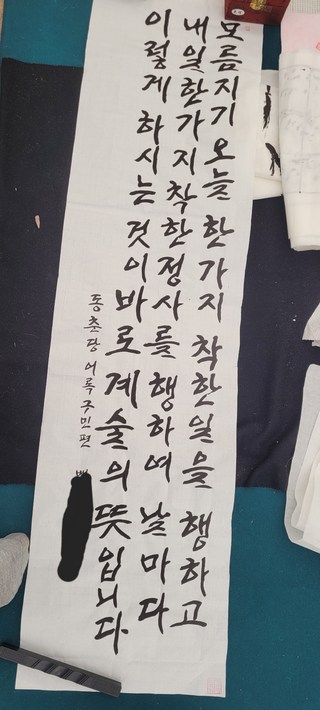 모름지기 오늘 한가지 착한일을 행하고
내일한가지착한정사를행하여 날마다
이렇게 하시는 것이 바로계술의 뜻입니다.
동춘당 어록 구민편